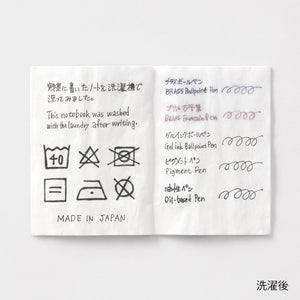 野葉に書いたノートを洗濯機で
洗ってみました。
This notebook was washed
with the laundry after writing.
40
MADE IN JAPAN
ブラスボールペン
BRASS Ballpoint Pen
ブラス万年筆
BRASS Fountain Pen
ゲルインクボールペン
Gel ink Ballpoint Pen
ピグメントペン
Pigment Pen
油性ペン
Oil-based Pen
洗濯後